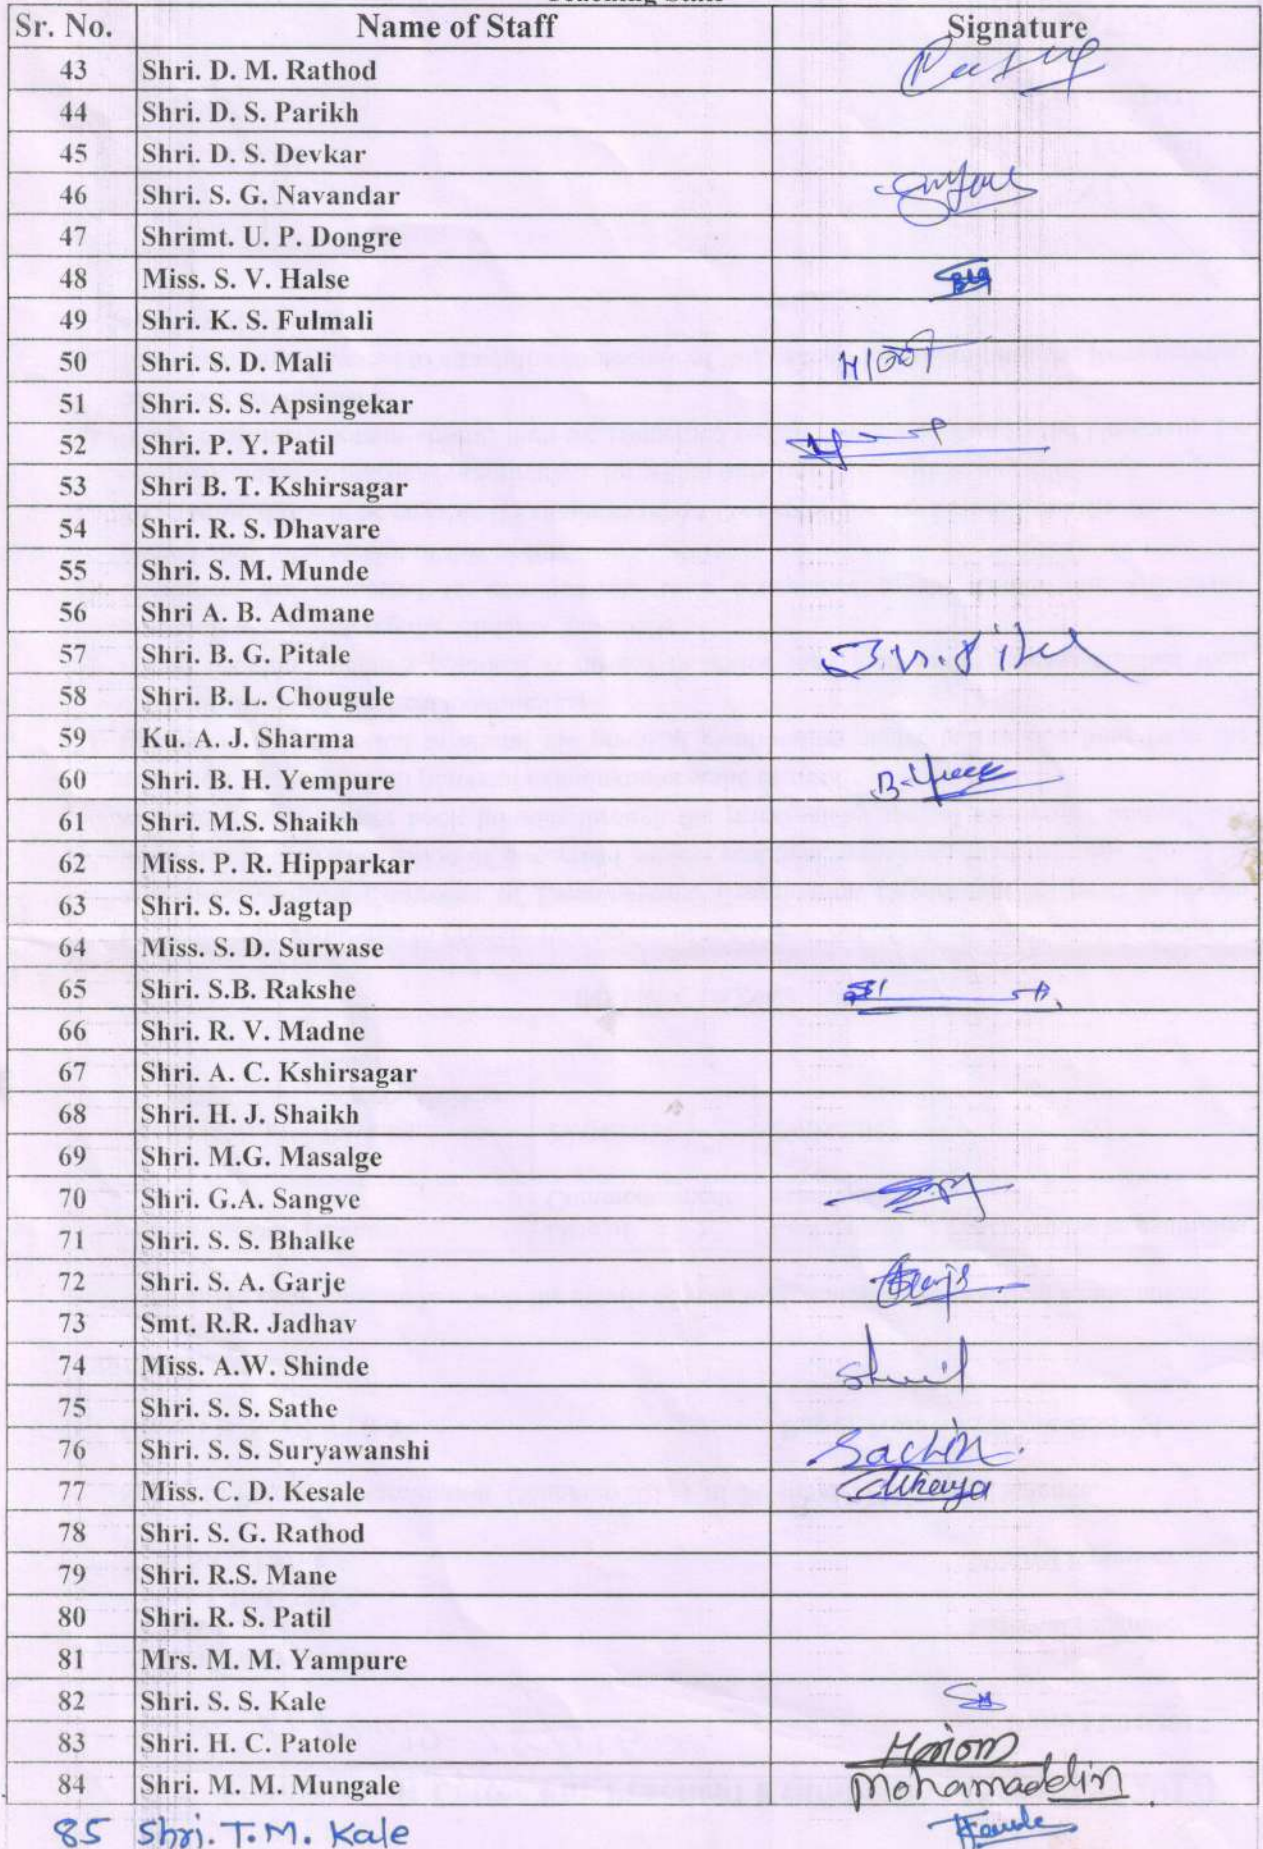 Teaching Staff
Sr. No. Name of Staff Signature
43 Shri. D. M. Rathod
44 Shri. D. S. Parikh
45 Shri. D. S. Devkar
46 Shri. S. G. Navandar
47 Shrimt. U. P. Dongre
48 Miss. S. V. Halse
49 Shri. K. S. Fulmali
50 Shri. S. D. Mali
51 Shri. S. S. Apsingekar
52 Shri. P. Y. Patil
53 Shri B. T. Kshirsagar
54 Shri. R. S. Dhavare
55 Shri. S. M. Munde
56 Shri A. B. Admane
57 Shri. B. G. Pitale
58 Shri. B. L. Chougule
59 Ku. A. J. Sharma
60 Shri. B. H. Yempure
61 Shri. M.S. Shaikh
62 Miss. P. R. Hipparkar
63 Shri. S. S. Jagtap
64 Miss. S. D. Surwase
65 Shri. S.B. Rakshe
66 Shri. R. V. Madne
67 Shri. A. C. Kshirsagar
68 Shri. H. J. Shaikh
69 Shri. M.G. Masalge
70 Shri. G.A. Sangve
71 Shri. S. S. Bhalke
72 Shri. S. A. Garje
73 Smt. R.R. Jadhav
74 Miss. A.W. Shinde
75 Shri. S. S. Sathe
76 Shri. S. S. Suryawanshi Sachin
77 Miss. C. D. Kesale
78 Shri. S. G. Rathod
79 Shri. R.S. Mane
80 Shri. R. S. Patil
81 Mrs. M. M. Yampure
82 Shri. S. S. Kale
83 Shri. H. C. Patole Hariom
84 Shri. M. M. Mungale Mohamaddelin
85 Shri. T. M. Kale